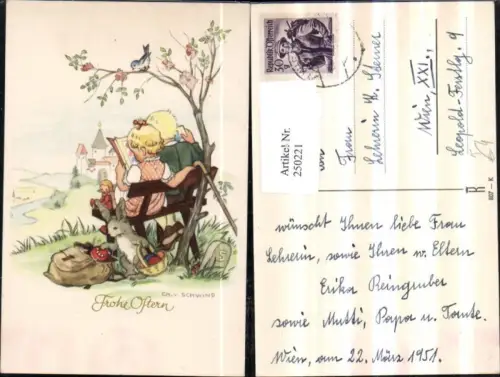 EMY SCHWIND
Frohe Ostern
Artikel Nr.
250221
30
Frau
Lehrerin H. Steiner
Wien, XXI.,
Leopold-Ferstlg. 9
K
607 - K
wünscht Ihnen liebe Frau
Lehrerin, sowie Ihren w. Eltern
Erika Reingruber
sowie Mutti, Papa u. Tante.
Wien, am 22. März 1951.